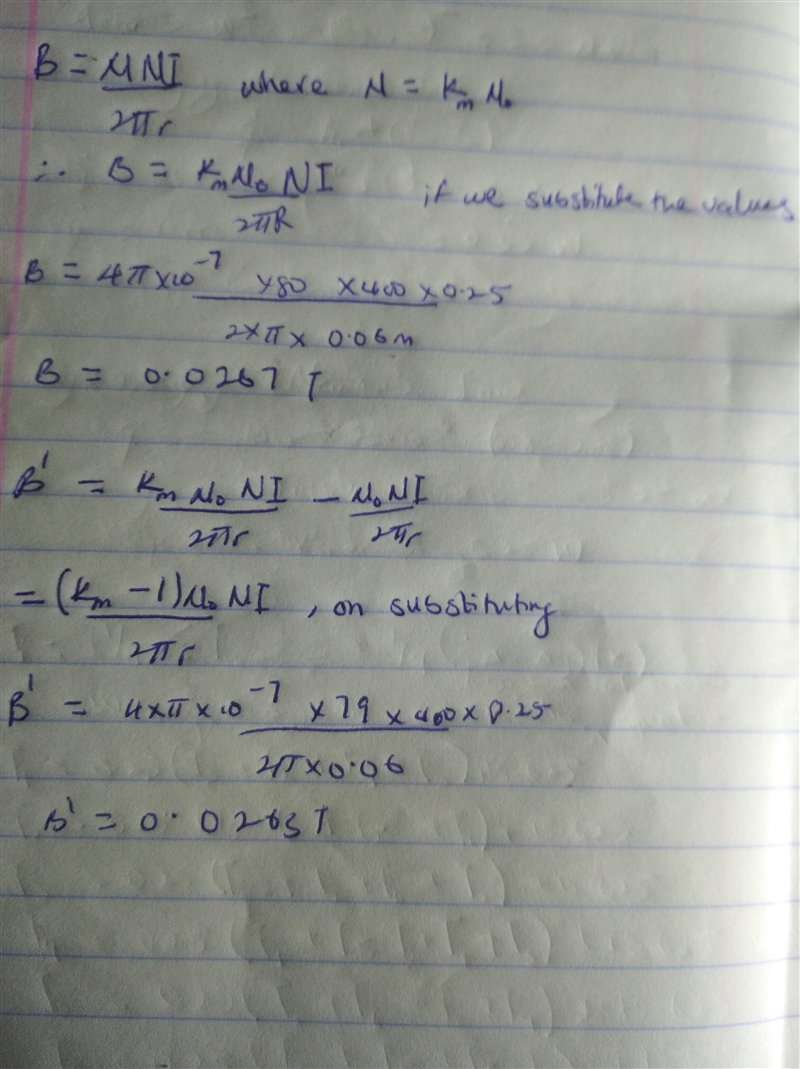 B = μNI where μ = Km μ₀
2πr
∴ B = Km μ₀ NI if we substitute the values
2πR
B = 4π×10⁻⁷ ×80 ×400 ×0.25
2×π× 0.06m
B = 0.0267 T
B' = Km μ₀ NI − μ₀NI
2πr 2πr
= (Km −1)μ₀ NI , on substituting
2πr
B' = 4×π×10⁻⁷ ×79 ×400× 0.25
2π×0.06
B' = 0.0263T